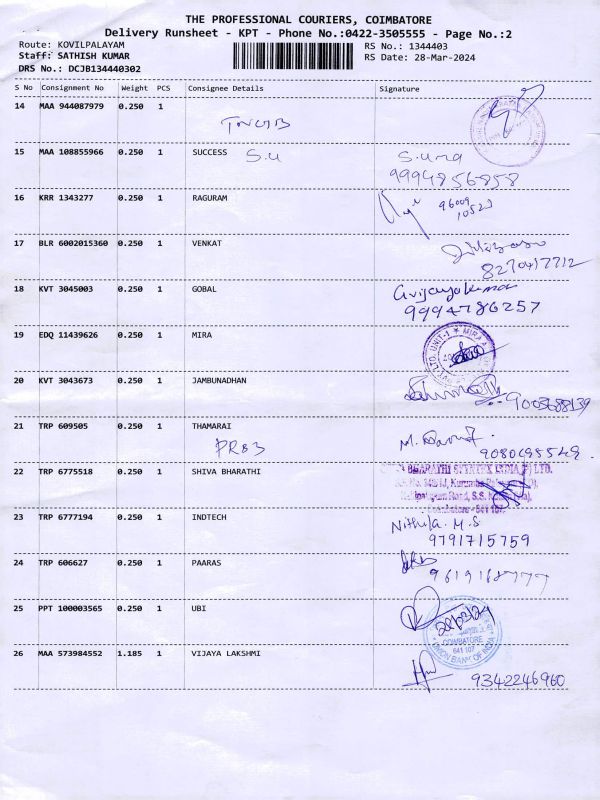 THE PROFESSIONAL COURIERS, COIMBATORE
Delivery Runsheet - KPT - Phone No.:0422-3505555 - Page No.:2
Route: KOVILPALAYAM RS No.: 1344403
Staff: SATHISH KUMAR RS Date: 28-Mar-2024
DRS No.: DCJB134440302
S No Consignment No Weight PCS Consignee Details Signature
14 MAA 944087979 0.250 1
15 MAA 108855966 0.250 1 SUCCESS S.U S.uma
9994856858
16 KRR 1343277 0.250 1 RAGURAM
96009
10523
17 BLR 6002015360 0.250 1 VENKAT
8270417712
18 KVT 3045003 0.250 1 GOBAL G.vijayakumar
9994786257
19 EDQ 11439626 0.250 1 MIRA
20 KVT 3043673 0.250 1 JAMBUNADHAN
9003688139
21 TRP 609505 0.250 1 THAMARAI
PR83 9080695549
22 TRP 6775518 0.250 1 SHIVA BHARATHI BHARATHI SYNTEX INDIA (P) LTD.
Coimbatore - 641 107
23 TRP 6777194 0.250 1 INDTECH Nithila. M.S
9791715759
24 TRP 606627 0.250 1 PAARAS
9619168777
25 PPT 100003565 0.250 1 UBI
COIMBATORE
641 107
UNION BANK OF INDIA
26 MAA 573984552 1.185 1 VIJAYA LAKSHMI
9342246960